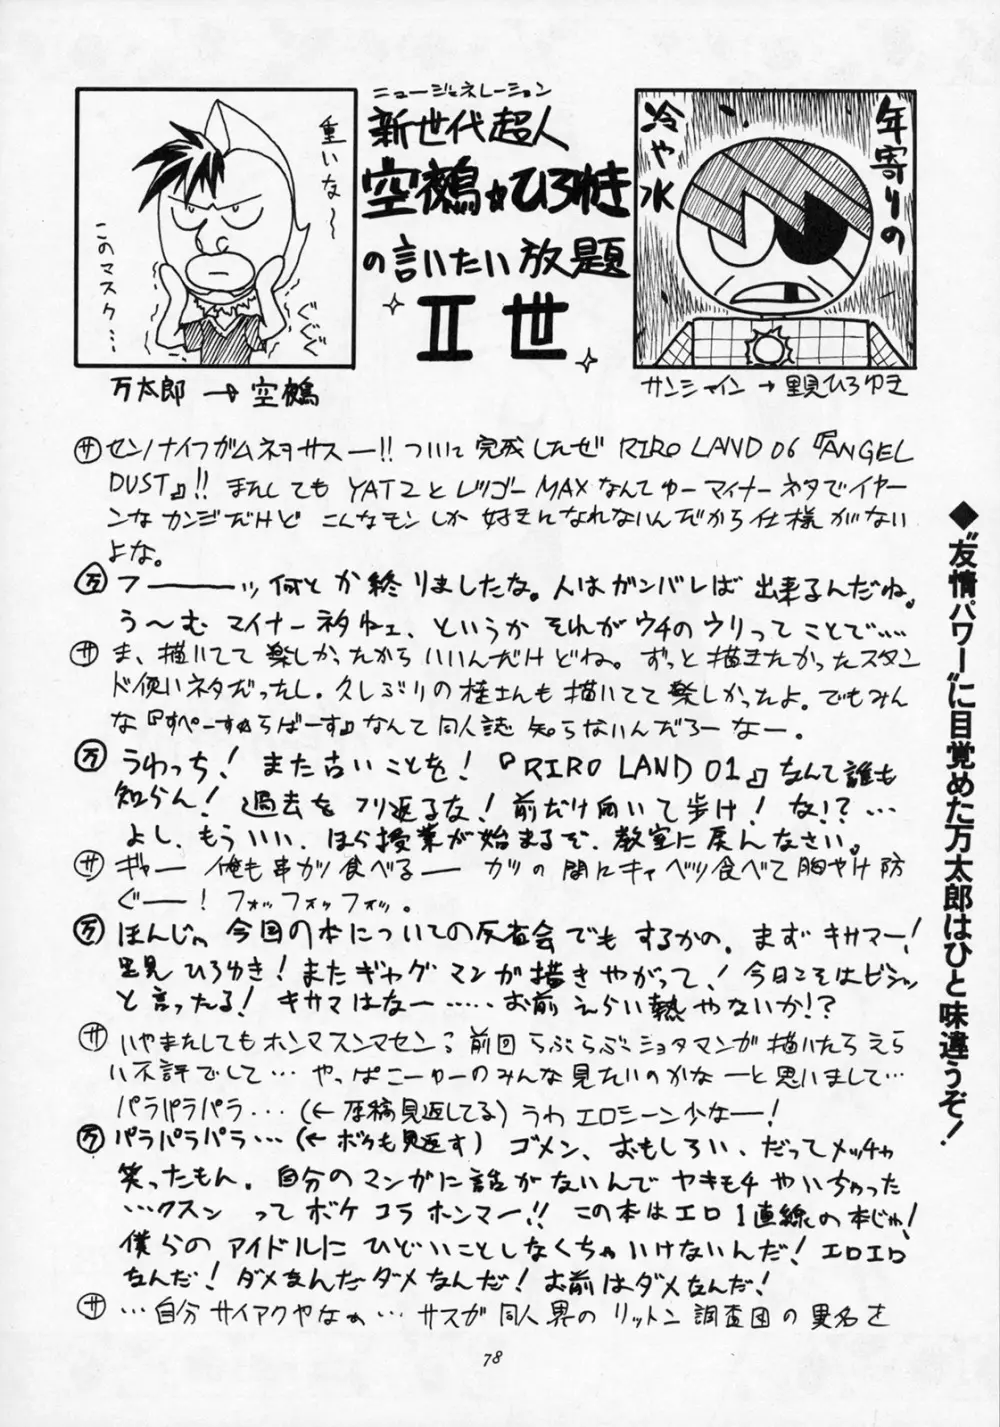 ニュージェネレーション
新世代超人
空鵺☆ひろゆき
の言いたい放題
II世
重いな〜
このマスク…
ぐぐぐ
万太郎→空鵺
年寄りの
冷や水
サンシャイン→里見ひろゆき
◆“友情パワー”に目覚めた万太郎はひと味違うぞ!
サ センノナイフガムネヲサスー!! ついに完成したぜ RIRO LAND 06『ANGEL
DUST』!! またしても YAT2とレツゴーMAXなんてゆーマイナーネタでイヤー
ンなカンジだけど こんなモンしか好きになれないんだから仕様がない
よな。
万 フーーーッ何とか終りましたな。人はガンバレば出来るんだね。
う〜む マイナーネタねェ、というか それがウチのウリってことで……
サ ま、描いてて楽しかったからいいんだけどね。ずっと描きたかったスタン
ド使いネタだったし。久しぶりの桂さんも描いてて楽しかったよ。でもみん
な『すぺーすゅらばーす』なんて同人誌知らないんだろーなー。
万 うわっち! また古いことを!『RIRO LAND 01』なんて誰も
知らん! 過去をフリ返るな! 前だけ向いて歩け! な!?…
よし、もういい、ほら授業が始まるぞ、教室に戻んなさい。
サ ギャー 俺も串カツ食べるー カツの間にキャベツ食べて胸やけ防
ぐーー! フォッフォッフォッ。
万 ほんじゃ今回の本についての反省会でもするかの。まずキサマー!
里見ひろゆき! またギャグマンガ描きやがって! 今日こそはビシッ
と言ったる! キサマはなー……お前えらい熱やないか!?
サ いやまたしてもホンマスンマセン。前回らぶらぶショタマンガ描いたらえら
い不評でして…やっぱこーゆーのみんな見たいのかなーと思いまして…
パラパラパラ…(←原稿見返してる) うわエロシーン少なー!
万 パラパラパラ…(←ボクも見返す) ゴメン、おもしろい、だってメッチャ
笑ったもん。自分のマンガに話がないんでヤキモチやいちゃった
…クスン ってボケコラホンマー!! この本はエロ1直線の本じゃ!
僕らのアイドルにひどいことしなくちゃいけないんだ! エロエロ
なんだ! ダメなんだダメなんだ! お前はダメなんだ!
サ …自分サイアクやなぁ…サスガ同人界のリットン調査団の異名を
78